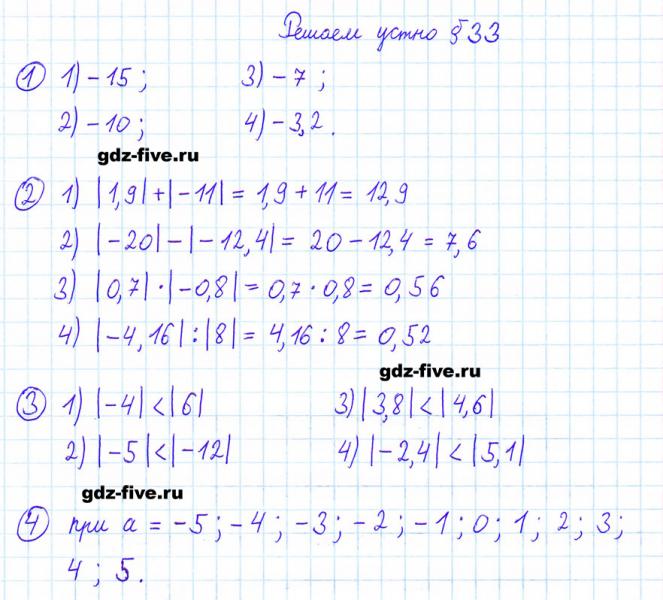 Решаем устно § 33
① 1) -15; 3) -7;
2) -10; 4) -3,2.
gdz-five.ru
② 1) |1,9| + |-11| = 1,9 + 11 = 12,9
2) |-20| - |-12,4| = 20 - 12,4 = 7,6
3) |0,7| · |-0,8| = 0,7 · 0,8 = 0,56
4) |-4,16| : |8| = 4,16 : 8 = 0,52
gdz-five.ru
③ 1) |-4| < |6| 3) |3,8| < |4,6|
2) |-5| < |-12| 4) |-2,4| < |5,1|
gdz-five.ru
④ при a = -5; -4; -3; -2; -1; 0; 1; 2; 3;
4; 5.